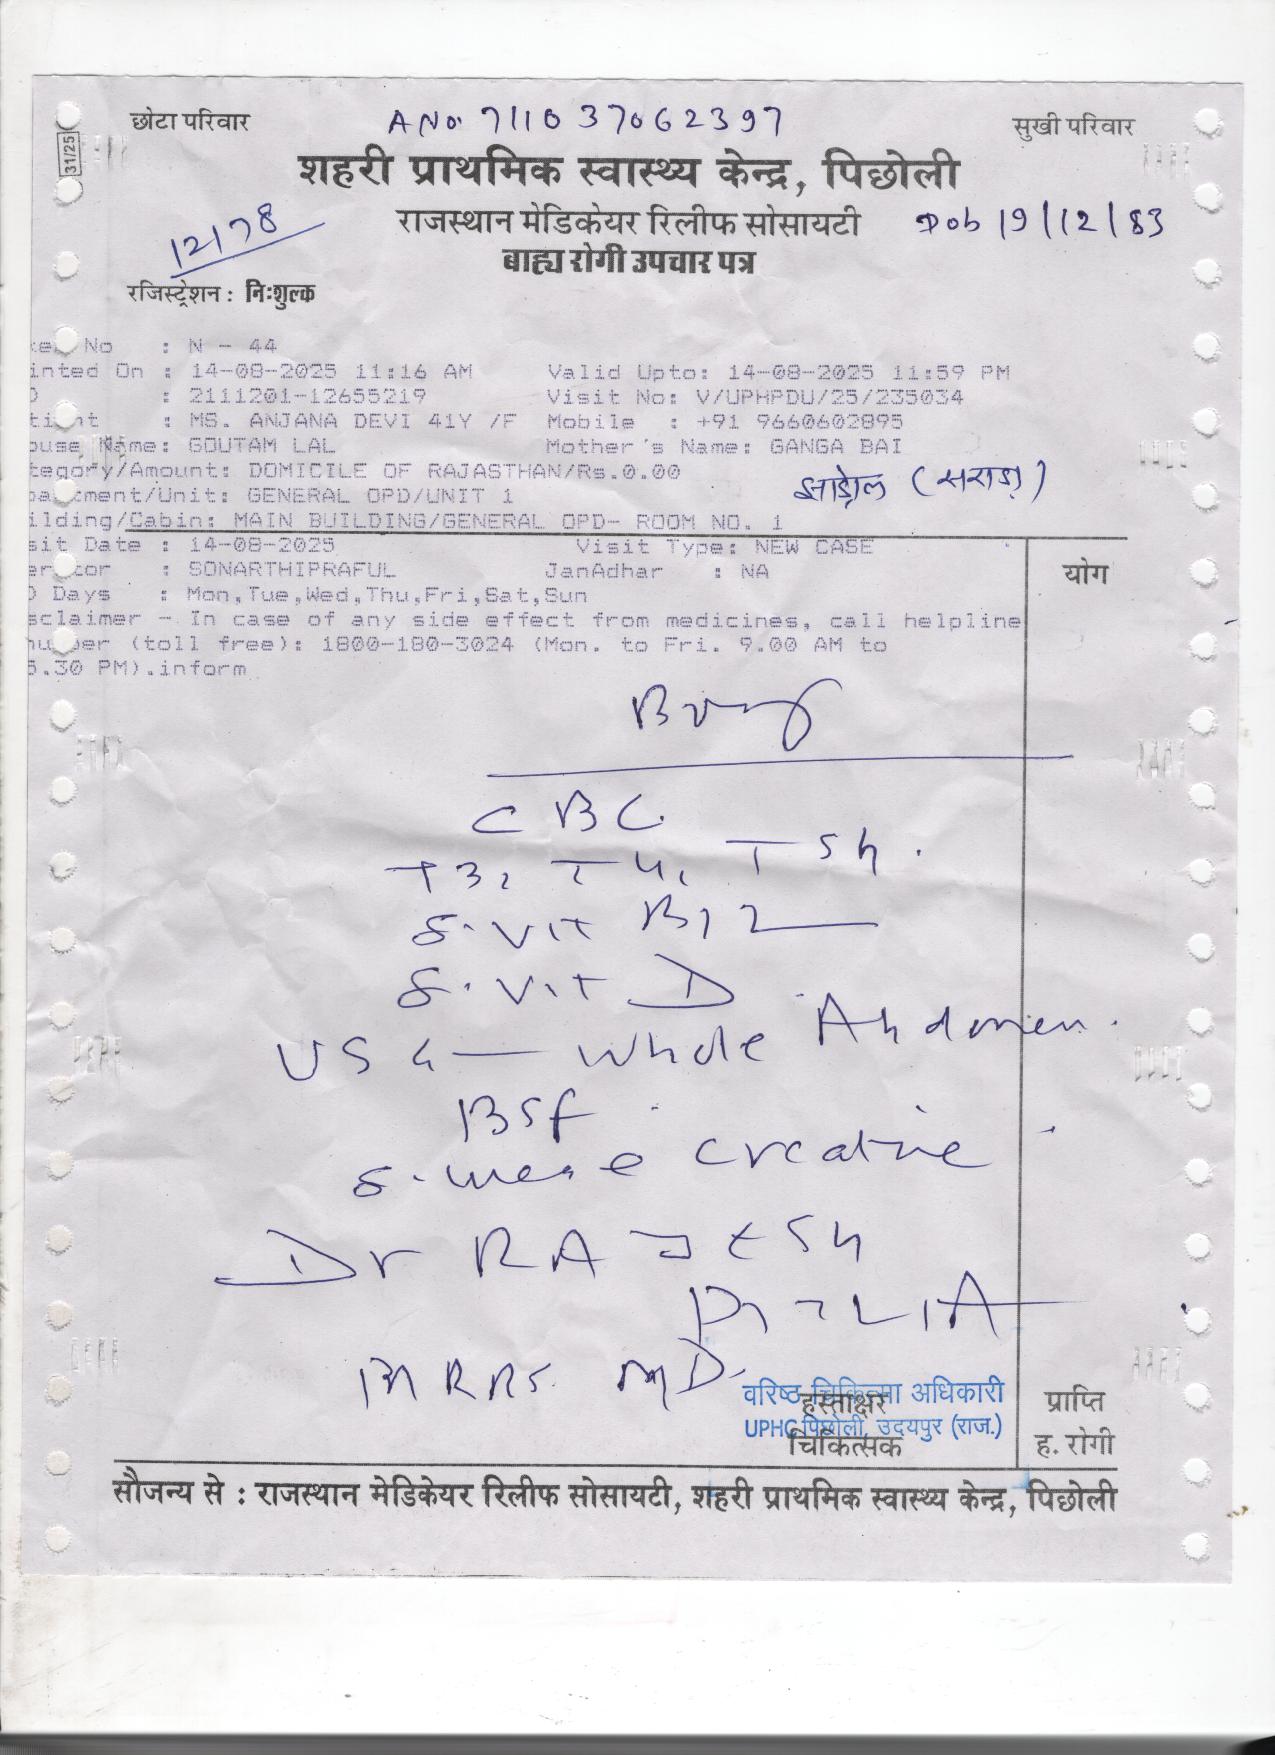 छोटा परिवार
A No. 711037062397
सुखी परिवार
31/25
शहरी प्राथमिक स्वास्थ्य केन्द्र, पिछोली
राजस्थान मेडिकेयर रिलीफ सोसायटी
Dob 19/12/83
12178
बाह्य रोगी उपचार पत्र
रजिस्ट्रेशन : निःशुल्क
No : N - 44
inted On : 14-08-2025 11:16 AM Valid Upto: 14-08-2025 11:59 PM
: 2111201-12655219 Visit No: V/UPHPDU/25/235034
: MS. ANJANA DEVI 41Y /F Mobile : +91 9660602895
ouse Name: GOUTAM LAL Mother's Name: GANGA BAI
tegory/Amount: DOMICILE OF RAJASTHAN/Rs.0.00
partment/Unit: GENERAL OPD/UNIT 1
(सराडा)
ilding/Cabin: MAIN BUILDING/GENERAL OPD- ROOM NO. 1
sit Date : 14-08-2025 Visit Type: NEW CASE
: SONARTHIPRAFUL JanAdhar : NA
योग
D Days : Mon,Tue,Wed,Thu,Fri,Sat,Sun
sclaimer - In case of any side effect from medicines, call helpline
number (toll free): 1800-180-3024 (Mon. to Fri. 9.00 AM to
5.30 PM).inform
CBC
T3, T4, TSh.
S. Vit B12
S. Vit D
USG — Whole Abdomen.
BSF
Creatine
Dr RAJESH
MBBS. MD.
वरिष्ठ चिकित्सा अधिकारी
हस्ताक्षर
UPHC पिछोली, उदयपुर (राज.)
चिकित्सक
प्राप्ति
ह. रोगी
सौजन्य से : राजस्थान मेडिकेयर रिलीफ सोसायटी, शहरी प्राथमिक स्वास्थ्य केन्द्र, पिछोली